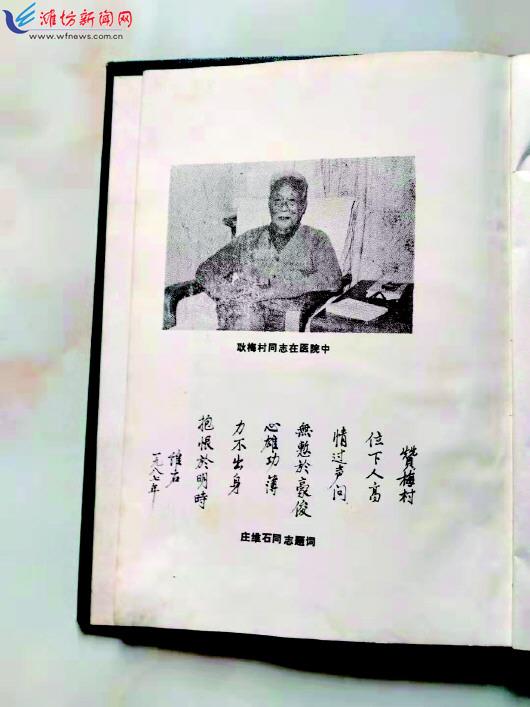 潍坊新闻网
www.wfnews.com.cn
耿梅村同志在医院中
赞梅村
位下人高
情过声问
無愁於豪俊
心雄功薄
力不出身
抱恨於明時
維石
一九八七年
庄维石同志题词